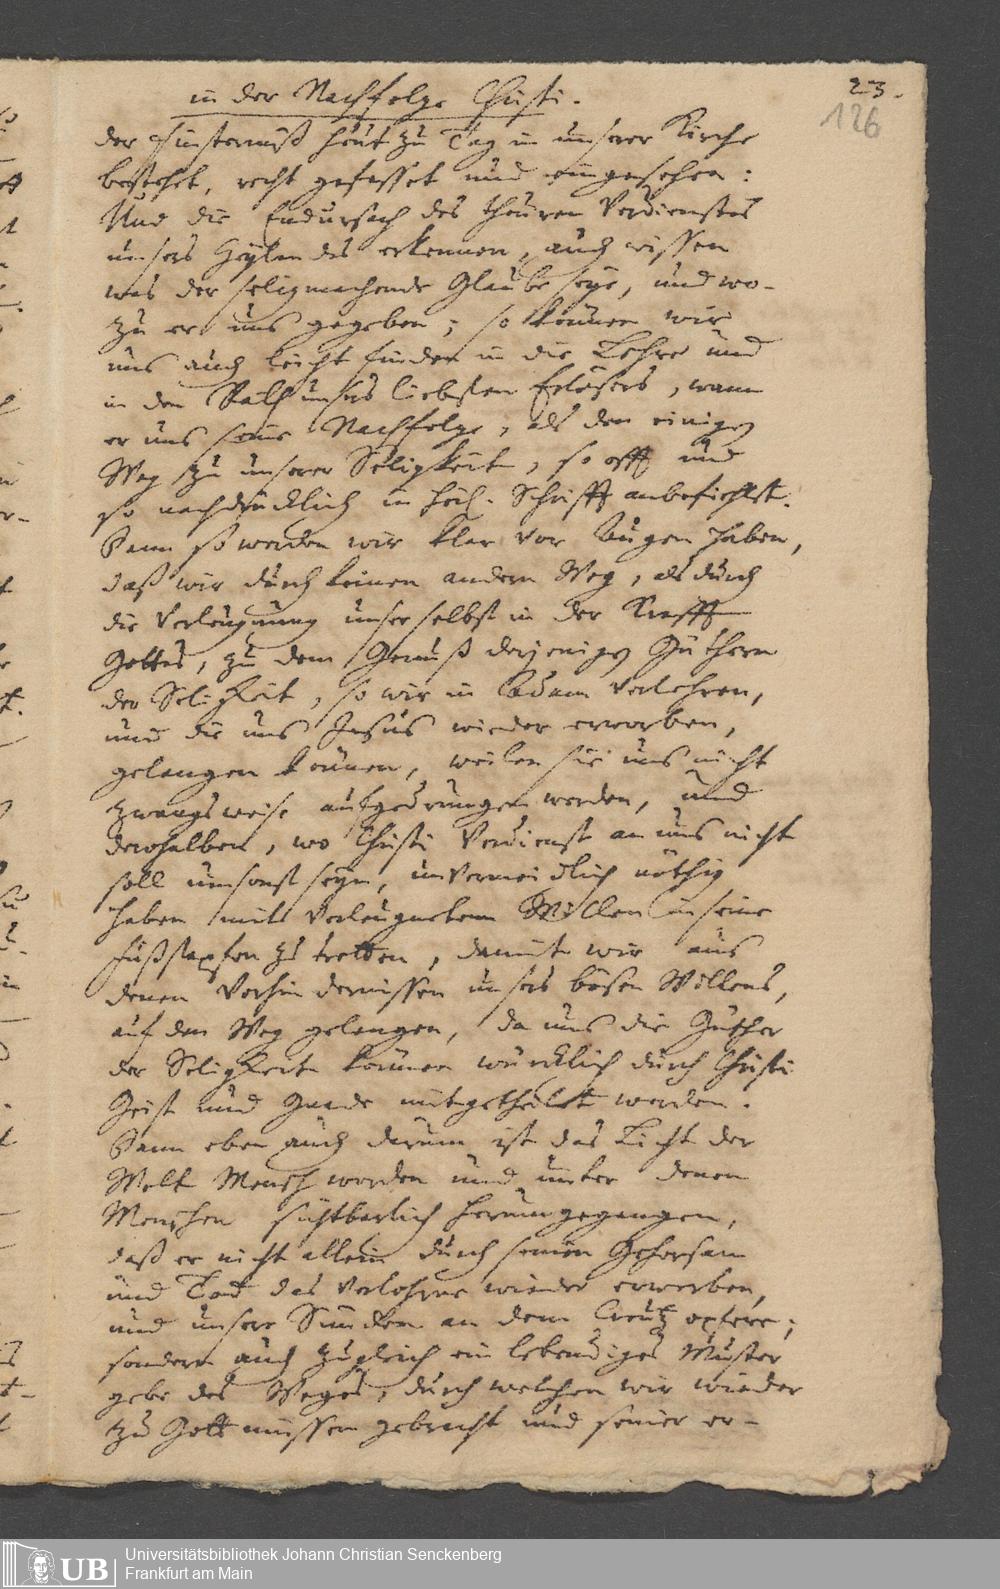 in der Nachfolge Christi.
23.
126
der Finsternüß heut zu Tag in unserer Kirche
bestehet, recht gefasset und eingesehen:
Und die Endursach des theuren Verdienstes
unsers Heylandes erkennen, auch wissen
was der seligmachende Glaube seye, und wo-
zu er uns gegeben; so können wir
uns auch leicht finden in die Lehre und
in den Rath unsers liebsten Erlösers, wann
er uns seine Nachfolge, als den einigen
Weg zu unserer Seligkeit, so offt und
so nachdrücklich in heil. Schrifft anbefiehlt.
Dann so werden wir klar vor Augen haben,
daß wir durch keinen andern Weg, als durch
die Verleugnung unser selbst in der Krafft
Gottes, zu dem Genuß derjenigen Güthern
der Seligkeit, so wir in Adam verlohren,
und die uns Jesus wieder erworben,
gelangen können, weilen sie uns nicht
zwangsweise aufgedrungen werden, und
derohalben, wo Christi Verdienst an uns nicht
soll umsonst seyn, unvermeidlich nöthig
haben mit verleugnetem Willen in seine
Fußstapfen zu tretten, damit wir aus
denen Verhindernissen unsers bösen Willens,
auf den Weg gelangen, da uns die Güther
der Seligkeit können würcklich durch Christi
Geist und Gnade mitgetheilet werden.
Dann eben auch darum ist das Licht der
Welt Mensch worden und unter denen
Menschen sichtbarlich herumgegangen,
daß er nicht allein durch seinen Gehorsam
und Tod das Verlohrne wieder erwerben,
und unsere Sünden an dem Creutz opfere;
sondern auch zugleich ein lebendiges Muster
gebe des Weges, durch welchen wir wieder
zu Gott müssen gebracht und seiner er-
UB
Universitätsbibliothek Johann Christian Senckenberg
Frankfurt am Main